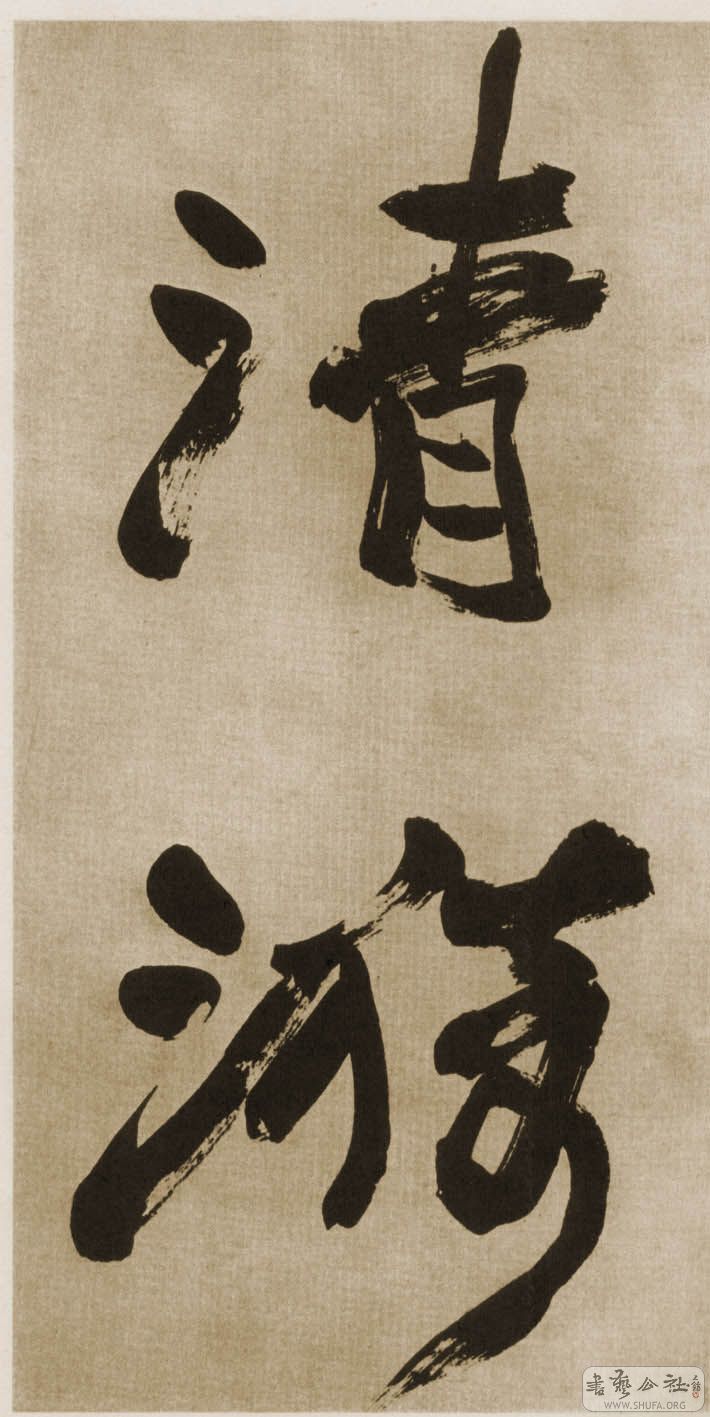 清
漪
書藝公社
WWW.SHUFA.ORG